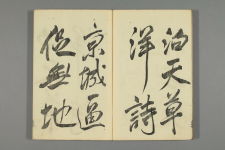 泊天草
洋詩
京城逼
促無地